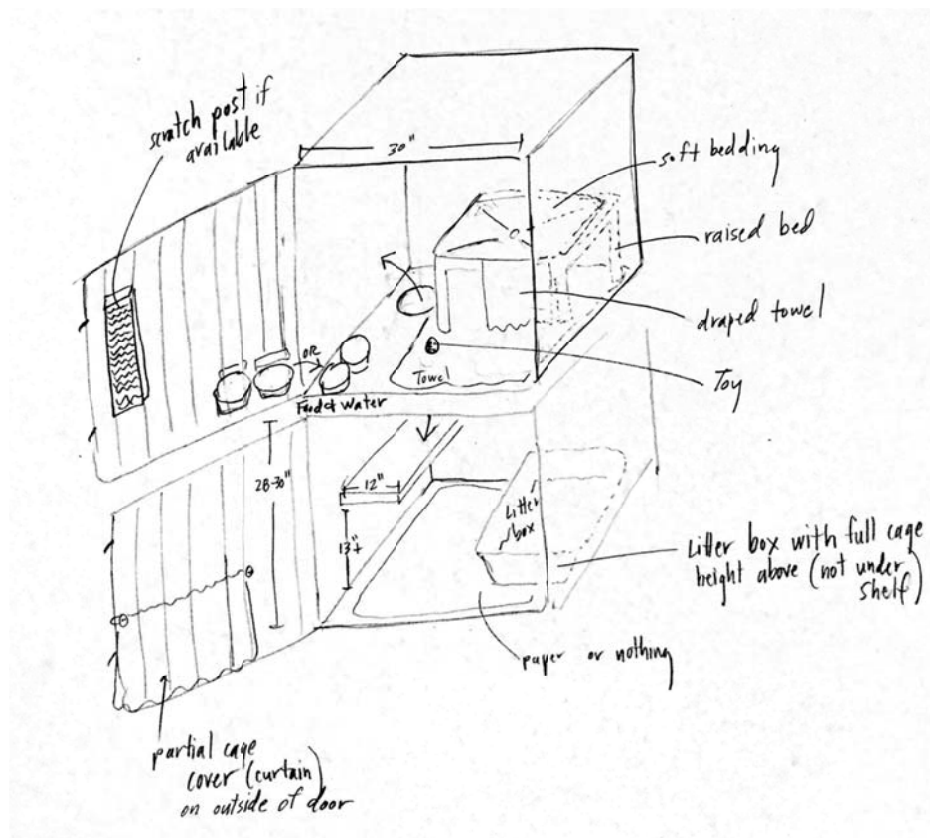 scratch post if
available
30"
soft bedding
raised bed
draped towel
Toy
OR
Towel
Food & Water
28-30"
12"
13"+
Litter
box
Litter box with full cage
height above (not under
shelf)
paper or nothing
partial cage
cover (curtain)
on outside of door